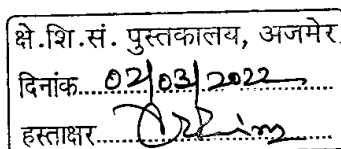 क्षे.शि.सं. पुस्तकालय, अजमेर
दिनांक.....02/03/2022.....
हस्ताक्षर.....